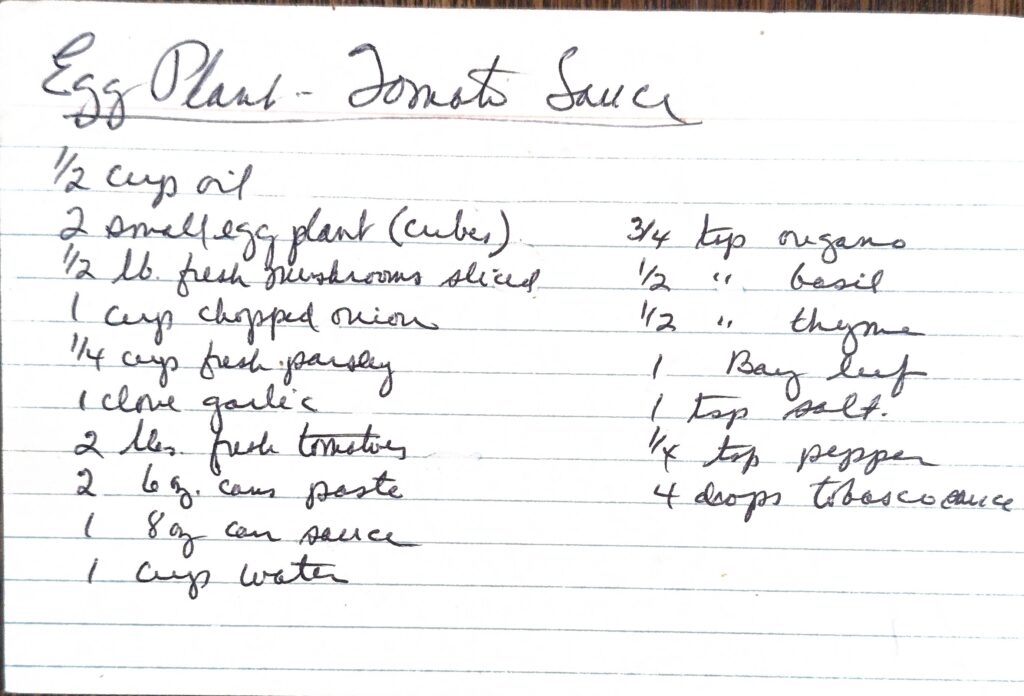 Egg Plant - Tomato Sauce
1/2 cup oil
2 small egg plant (cubes)
1/2 lb. fresh mushrooms sliced
1 cup chopped onion
1/4 cup fresh parsley
1 clove garlic
2 lbs. fresh tomatoes
2 6 oz. cans paste
1 8 oz can sauce
1 cup water
3/4 tsp oregano
1/2 " basil
1/2 " thyme
1 Bay leef
1 tsp salt.
1/4 tsp pepper
4 drops tobasco sauce